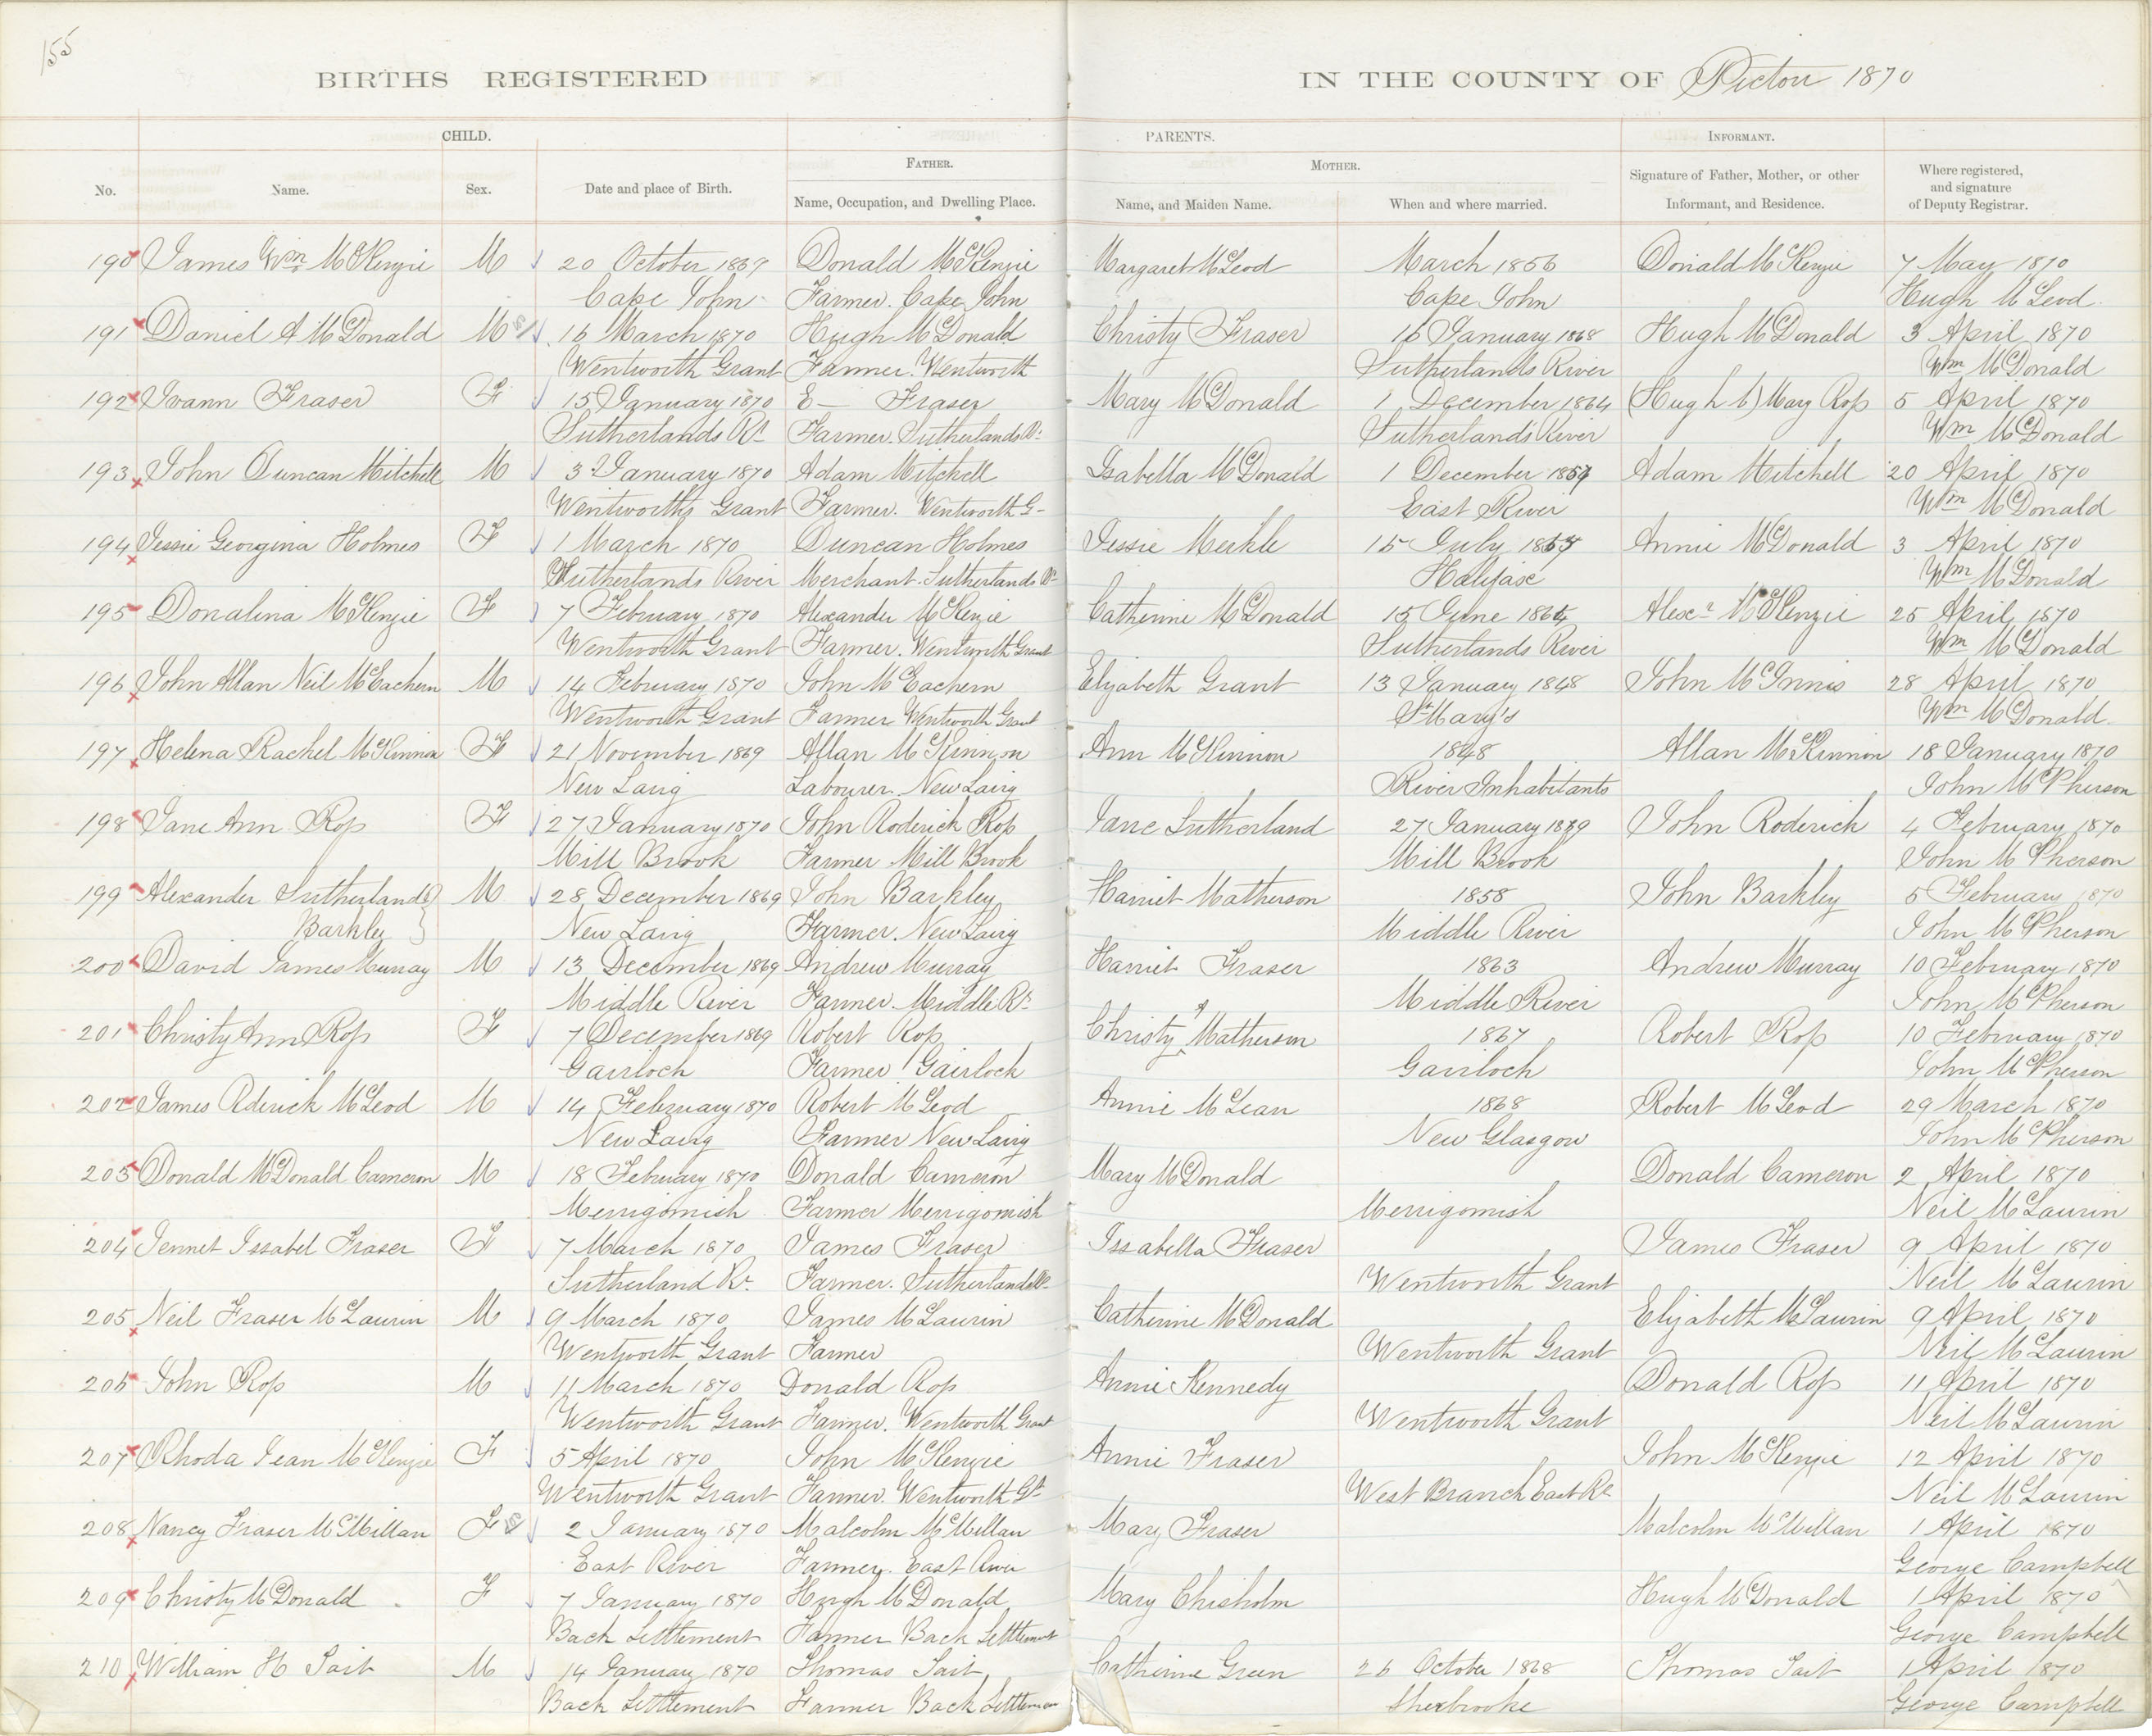 155
BIRTHS REGISTERED IN THE COUNTY OF Pictou 1870
CHILD. PARENTS. INFORMANT.
FATHER. MOTHER.
No. Name. Sex. Date and place of Birth. Name, Occupation, and Dwelling Place. Name, and Maiden Name. When and where married. Signature of Father, Mother, or other Informant, and Residence. Where registered, and signature of Deputy Registrar.
190 James Wm McKenzie M 20 October 1869 Donald McKenzie Margaret McLeod March 1856 Donald McKenzie 7 May 1870
Cape John Farmer. Cape John Cape John Hugh McLeod.
191 Daniel A McDonald M 16 March 1870 Hugh McDonald Christy Fraser 16 January 1868 Hugh McDonald 3 April 1870
Wentworth Grant Farmer. Wentworth Sutherlands River Wm McDonald
192 Ivann Fraser F 15 January 1870 E— Fraser Mary McDonald 1 December 1864 (Hugh b) May Ross 5 April 1870
Sutherlands Rr Farmer. Sutherlands Rr Sutherlands River Wm McDonald
193 John Duncan Mitchell M 3 January 1870 Adam Mitchell Isabella McDonald 1 December Adam Mitchell 20 April 1870
Wentworths Grant Farmer. Wentworth G- East River Wm McDonald
194 Jessie Georgina Holmes F 1 March 1870 Duncan Holmes Jessie Meikle 15 July Annie McDonald 3 April 1870
Sutherlands River Merchant. Sutherlands Rr Halifax Wm McDonald
195 Donalina McKenzie F 7 February 1870 Alexander McKenzie Catherine McDonald 15 June Alexr McKenzie 25 April 1870
Wentworth Grant Farmer. Wentworth Grant Sutherlands River Wm McDonald
196 John Allan Neil McEachern M 14 February 1870 John McEachern Elizabeth Grant 13 January 1848 John McInnis 28 April 1870
Wentworth Grant Farmer Wentworth Grant St Mary's Wm McDonald
197 Helena Rachel McKinnon F 21 November 1869 Allan McKinnon Ann McKinnon 1848 Allan McKinnon 18 January 1870
New Lairg Labourer. New Lairg River Inhabitants John McPherson
198 Jane Ann Ross F 27 January 1870 John Roderick Ross Jane Sutherland 27 January John Roderick 4 February 1870
Mill Brook Farmer Mill Brook Mill Brook John McPherson
199 Alexander Sutherland M 28 December 1869 John Barkley Harriet Matherson 1858 John Barkley 5 February 1870
Barkley New Lairg Farmer. New Lairg Middle River John McPherson
200 David James Murray M 13 December 1869 Andrew Murray Harriet Fraser 1863 Andrew Murray 10 February 1870
Middle River Farmer. Middle Rr Middle River John McPherson
201 Christy Ann Ross F 7 December 1869 Robert Ross Christy A Matherson 1867 Robert Ross 10 February 1870
Gairloch Farmer Gairloch Gairloch John McPherson
202 James Rderick McLeod M 14 February 1870 Robert McLeod Annie McLean 1868 Robert McLeod 29 March 1870
New Lairg Farmer New Lairg New Glasgow John McPherson
203 Donald McDonald Cameron M 18 February 1870 Donald Cameron Mary McDonald Donald Cameron 2 April 1870
Merrigomish Farmer Merrigomish Merrigomish Neil McLaurin
204 Jennet Issabel Fraser F 7 March 1870 James Fraser Issabella Fraser James Fraser 9 April 1870
Sutherland Rr. Farmer. Sutherlands Rr Wentworth Grant Neil McLaurin
205 Neil Fraser McLaurin M 9 March 1870 James McLaurin Catherine McDonald Elizabeth McLaurin 9 April 1870
Wentworth Grant Farmer Wentworth Grant Neil McLaurin
206 John Ross M 11 March 1870 Donald Ross Annie Kennedy Donald Ross 11 April 1870
Wentworth Grant Farmer. Wentworth Grant Wentworth Grant Neil McLaurin
207 Rhoda Jean McKenzie F 5 April 1870 John McKenzie Annie Fraser John McKenzie 12 April 1870
Wentworth Grant Farmer. Wentworth Gt West Branch East Rr Neil McLaurin
208 Nancy Fraser McMillan F 2 January 1870 Malcolm McMillan Mary Fraser Malcolm McMillan 1 April 1870
East River Farmer. East River George Campbell
209 Christy McDonald F 7 January 1870 Hugh McDonald Mary Chisholm Hugh McDonald 1 April 1870
Back Settlement Farmer Back Settlement George Campbell
210 William H Tait M 14 January 1870 Thomas Tait Catherine Green 26 October 1868 Thomas Tait 1 April 1870
Back Settlement Farmer Back Settlemen Sherbrooke George Campbell